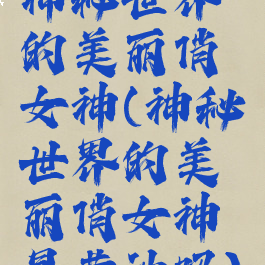 神秘世界
的美丽俏
女神(神秘
世界的美
丽俏女神